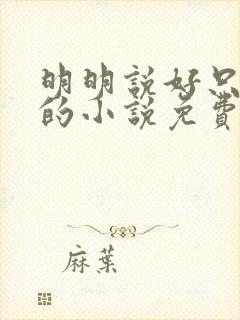 明明說好只
的小說免費
麻葉